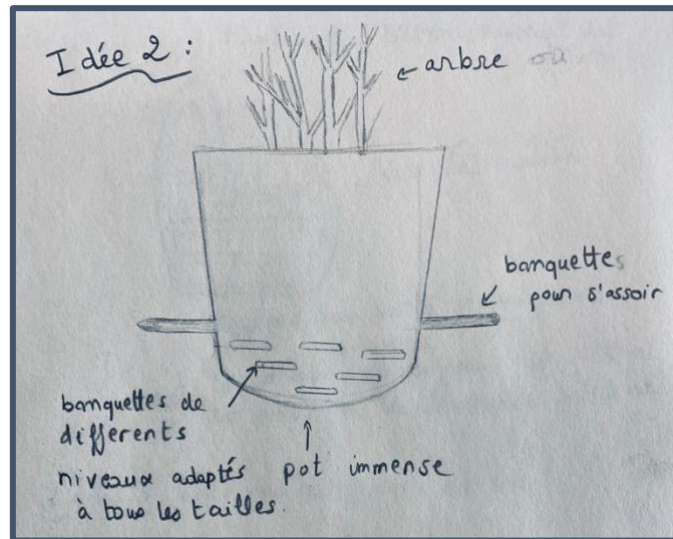 Idée 2 :
← arbre ou
banquettes
pour s'assoir
banquettes de
differents
niveaux adaptés
à tous les tailles.
pot immense